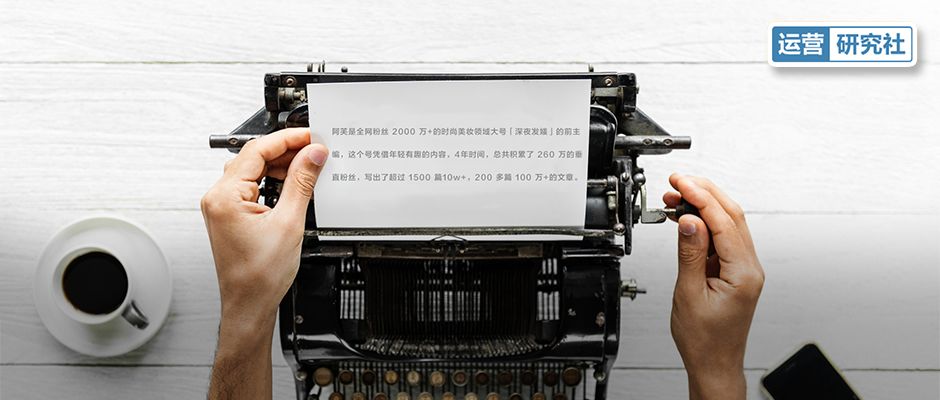 运营研究社
阿芙是全网粉丝 2000 万+的时尚美妆领域大号「深夜发媸」的前主
编，这个号凭借年轻有趣的内容，4年时间，总共积累了 260 万的垂
直粉丝，写出了超过 1500 篇10w+，200 多篇 100 万+的文章。